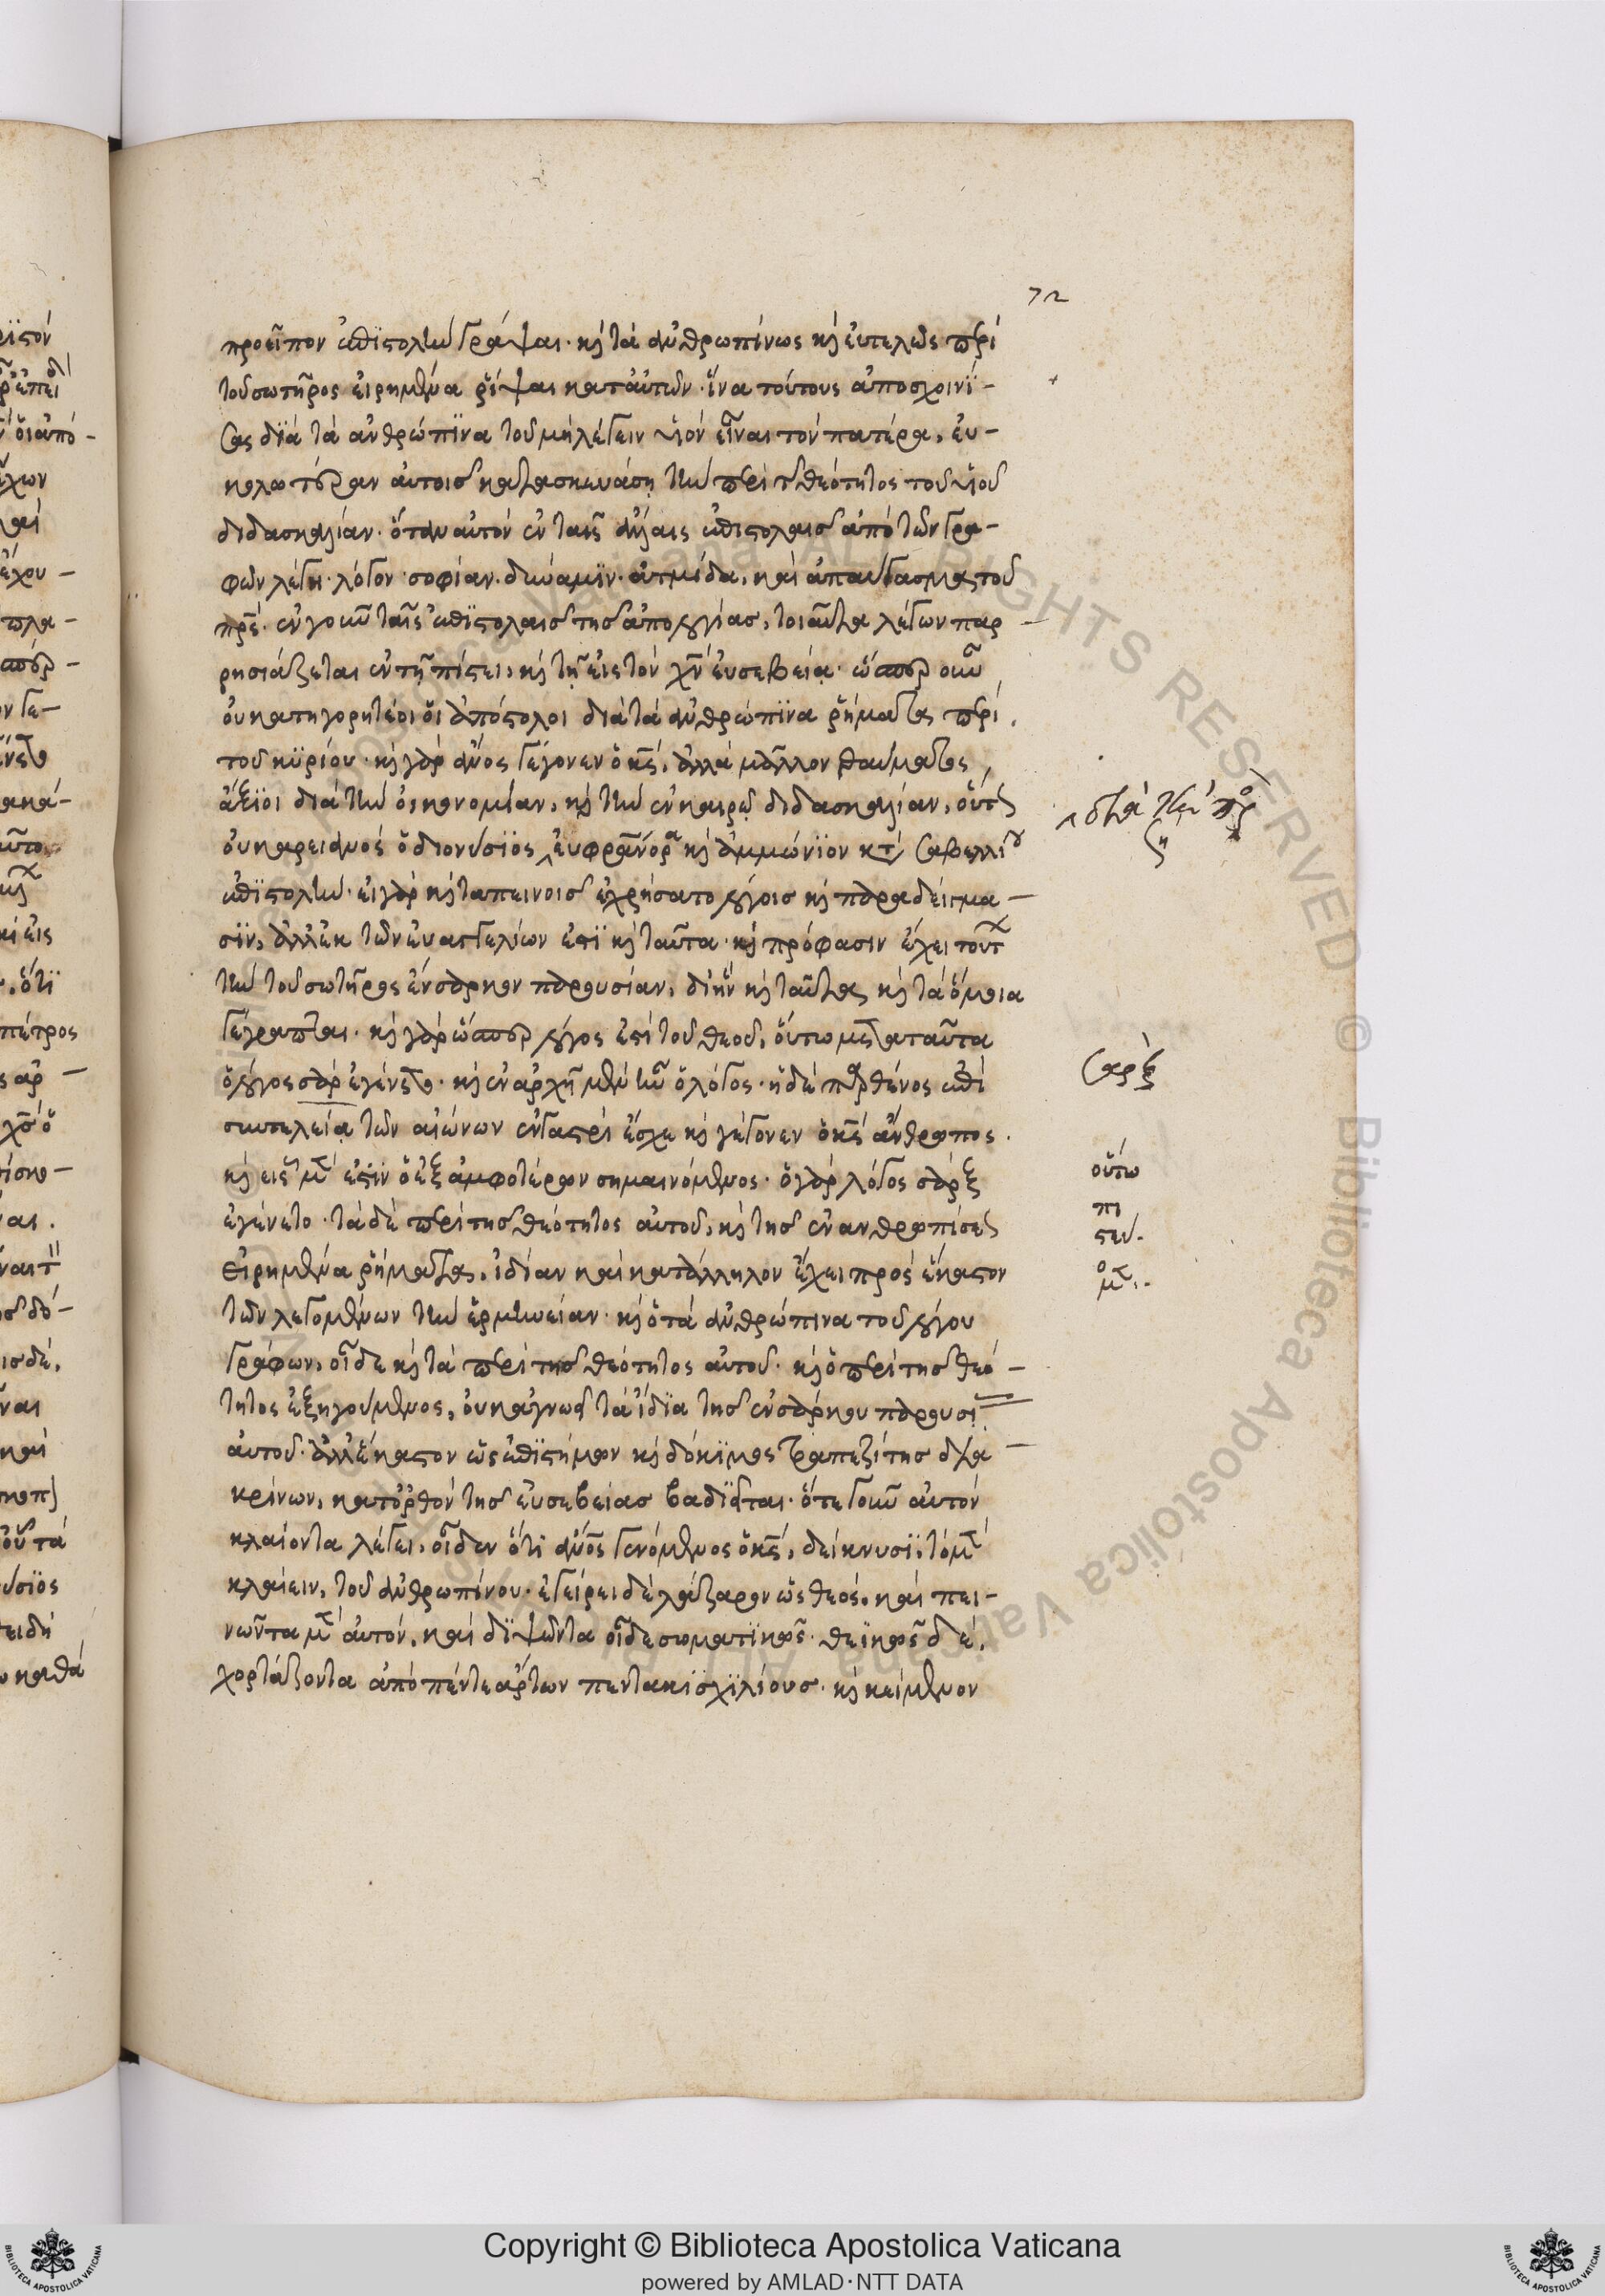 72
προεῖπον ἐπϊστολὴν γράψαι· καὶ τὰ ἀνθρωπίνως καὶ εὐτελῶς περὶ
τοῦ σωτῆρος εἰρημένα ῥίψαι κατ' αὐτῶν· ἵνα τούτους ἀποσχοινί-
σας διὰ τὰ ἀνθρώπϊνα τοῦ μὴ λέγειν υἱὸν εἶναι τὸν πατέρα, εὐ-
κολωτέραν αὐτοῖς κατασκευάσῃ τὴν περὶ τῆς θεότητος τοῦ υἱοῦ
διδασκαλίαν. ὅταν αὐτὸν ἐν ταῖς ἄλλαις ἐπιστολαῖς ἀπὸ τῶν γρα-
φῶν λέγῃ· λόγον· σοφίαν· δύναμϊν· ἀτμίδα, καὶ ἀπαύγασμα τοῦ
πρς· ἐν γοῦν ταῖς ἐπϊστολαῖς τῆς ἀπολογίας, τοιαῦτα λέγων παρ-
ρησιάζεται ἐν τῇ πίστει, καὶ τῇ εἰς τὸν χν εὐσεβείᾳ· ὥσπερ οὖν
οὐ κατηγορητέοι οἱ ἀπόστολοι διὰ τὰ ἀνθρώπϊνα ῥήματα περὶ
τοῦ κϋρίου· καὶ γὰρ ανος γέγονεν ὁ κς, ἀλλὰ μᾶλλον θαύματος
ἄξϊοι διὰ τὴν οἰκονομίαν, καὶ τὴν ἐν καιρῷ διδασκαλίαν, οὕτως
οὐκ ἀρειανὸς ὁ διονύσϊος εὐφράνορα καὶ ἀμμώνϊον κατὰ σαβελλίου
ἐπϊστολήν· εἰ γὰρ καὶ ταπεινοῖς ἐχρήσατο λόγοις καὶ παραδείγμα-
σϊν, ἀλλ' ἐκ τῶν εὐαγγελίων ἐστὶ καὶ ταῦτα· καὶ πρόφασιν ἔχει τούτων
τὴν τοῦ σωτῆρος ἔνσαρκον παρουσίαν, δι' ἣν καὶ ταῦτα καὶ τὰ ὅμοια
γέγραπται· καὶ γὰρ ὥσπερ λόγος ἐστὶ τοῦ θεοῦ, οὕτω μετὰ ταῦτα
ὁ λόγος σὰρξ ἐγένετο· καὶ ἐν ἀρχῇ μὲν ἦν ὁ λόγος· ἡ δὲ παρθένος ἐπὶ
συντελείᾳ τῶν αἰώνων ἐν γαστρὶ ἔσχε καὶ γέγονεν ὁ κς ἄνθρωπος.
καὶ εἷς μέν ἐστιν ὁ ἐξ ἀμφοτέρων σημαινόμενος· ὁ γὰρ λόγος σὰρξ
ἐγένετο· τὰ δὲ περὶ τῆς θεότητος αὐτοῦ, καὶ τῆς ἐνανθρωπίσεως
εἰρημένα ῥήματα, ἰδίαν καὶ κατάλληλον ἔχει πρὸς ἕκαστον
τῶν λεγομένων τὴν ἑρμηνείαν· καὶ ὁ τὰ ἀνθρώπινα τοῦ λόγου
γράφων, οἶδε καὶ τὰ περὶ τῆς θεότητος αὐτοῦ· καὶ ὁ περὶ τῆς θεό-
τητος ἐξηγούμενος, οὐκ ἀγνοεῖ τὰ ἴδϊα τῆς ἐνσάρκου παρουσί
αὐτοῦ· ἀλλ' ἕκαστον ὡς ἐπϊστήμων καὶ δόκϊμος τραπεζίτης δια-
κρίνων, κατ' ὀρθὸν τῆς εὐσεβείας βαδϊεῖται· ὅτε γοῦν αὐτὸν
κλαίοντα λέγει, οἶδεν ὅτϊ ανος γενόμενος ὁ κς, δείκνυσϊ, τὸ μὲν
κλαίειν, τοῦ ἀνθρωπίνου· ἐγείρει δὲ λάζαρον ὡς θεός, καὶ πει-
νῶντα μὲν αὐτὸν, καὶ δϊψῶντα οἶδε σωματϊκῶς· θεϊκῶς δὲ,
χορτάζοντα ἀπὸ πέντε ἄρτων πεντακϊσχϊλίους· καὶ κείμενον
σαρξ
οὕτω
Copyright © Biblioteca Apostolica Vaticana
powered by AMLAD·NTT DATA